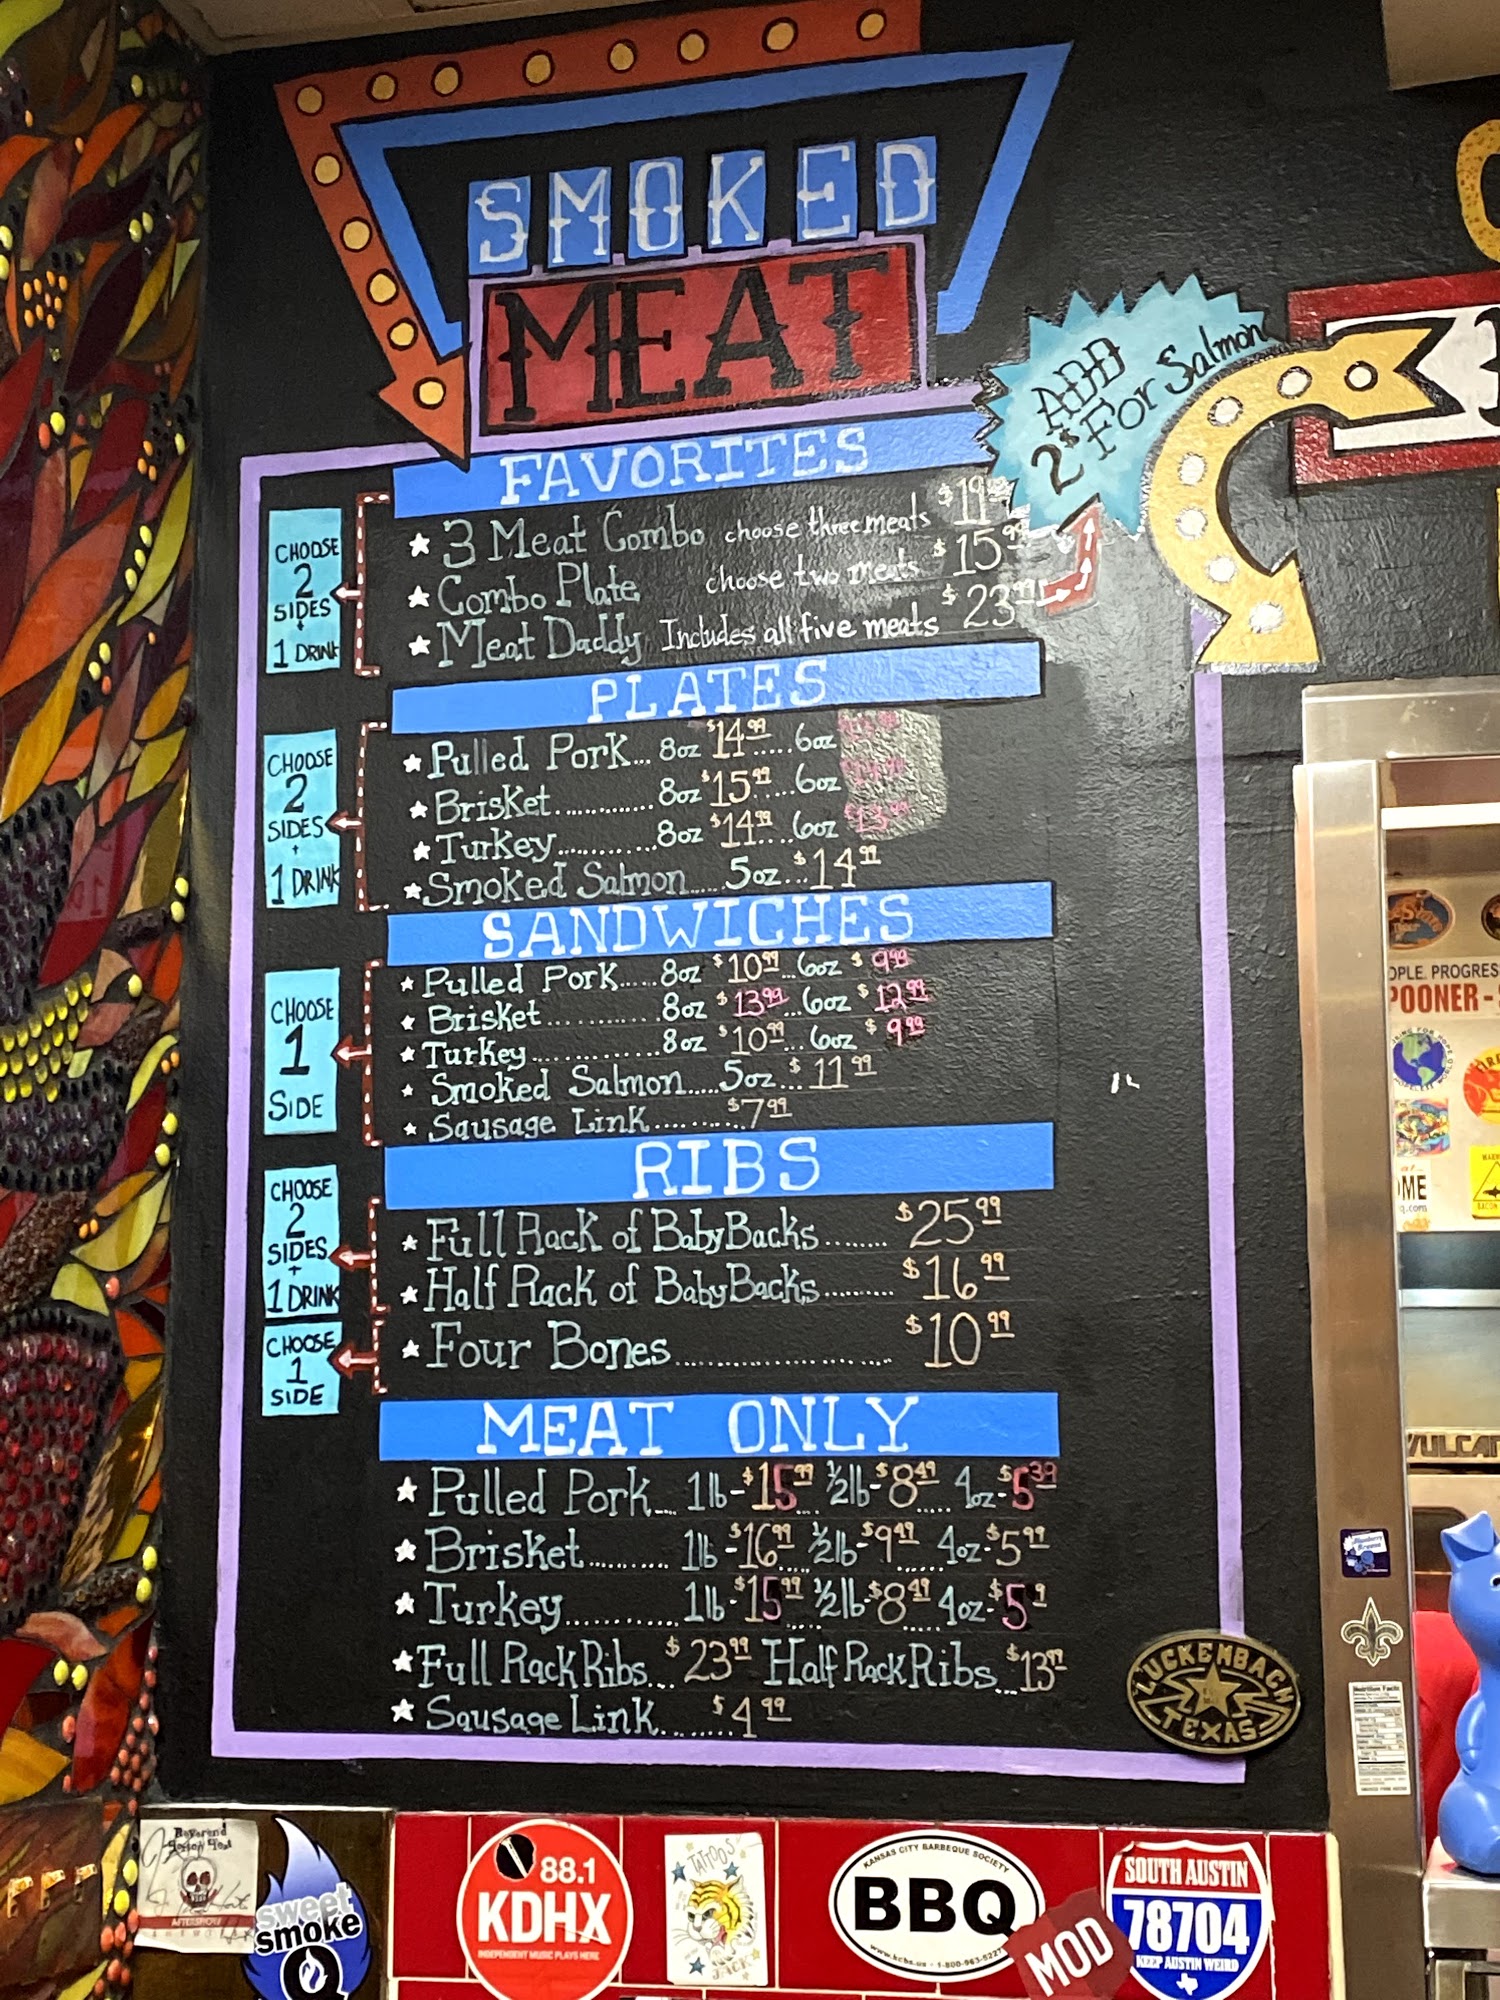 SMOKED
MEAT
ADD
2$ For Salmon
FAVORITES
CHOOSE
2
SIDES
+
1 DRINK
★ 3 Meat Combo choose three meats $19
★ Combo Plate choose two meats $15.99
★ Meat Daddy Includes all five meats $23.99
PLATES
CHOOSE
2
SIDES
+
1 DRINK
★ Pulled Pork... 8oz $14.99.....6oz
★ Brisket............. 8oz $15.99.....6oz
★ Turkey............ 8oz $14.99....6oz $13.99
★ Smoked Salmon..... 5oz...$14.99
SANDWICHES
CHOOSE
1
SIDE
★ Pulled Pork..... 8oz $10.99...6oz $9.99
★ Brisket............ 8oz $13.99...6oz $12.99
★ Turkey.............. 8oz $10.99...6oz $9.99
★ Smoked Salmon.....5oz...$11.99
★ Sausage Link..........$7.99
RIBS
CHOOSE
2
SIDES
+
1 DRINK
★ Full Rack of Baby Backs....... $25.99
★ Half Rack of Baby Backs......... $16.99
CHOOSE
1
SIDE
★ Four Bones...................... $10.99
MEAT ONLY
★ Pulled Pork... 1lb-$15.99...½lb-$8.49.....4oz-$5.39
★ Brisket.......... 1lb-$16.99....½lb-$9.49....4oz-$5.99
★ Turkey............ 1lb-$15.99....½lb-$8.49....4oz-$5.9
★ Full Rack Ribs... $23.99 Half Rack Ribs...$13.99
★ Sausage Link....... $4.99
LUCKENBACH
TEXAS
OPLE. PROGRES
POONER -
VULCAN
Nutrition Facts
Reverend
AFTERSHOW
sweet
smoke
Q
88.1
KDHX
INDEPENDENT MUSIC PLAYS HERE
TATTOOS
KANSAS CITY BARBEQUE SOCIETY
BBQ
www.kcbs.us • 1-800-963-5227
MOD
SOUTH AUSTIN
78704
KEEP AUSTIN WEIRD